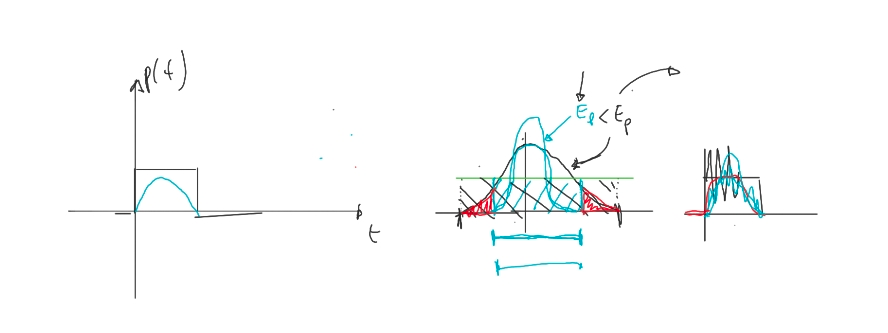 p(t)
t
E_p < E_p